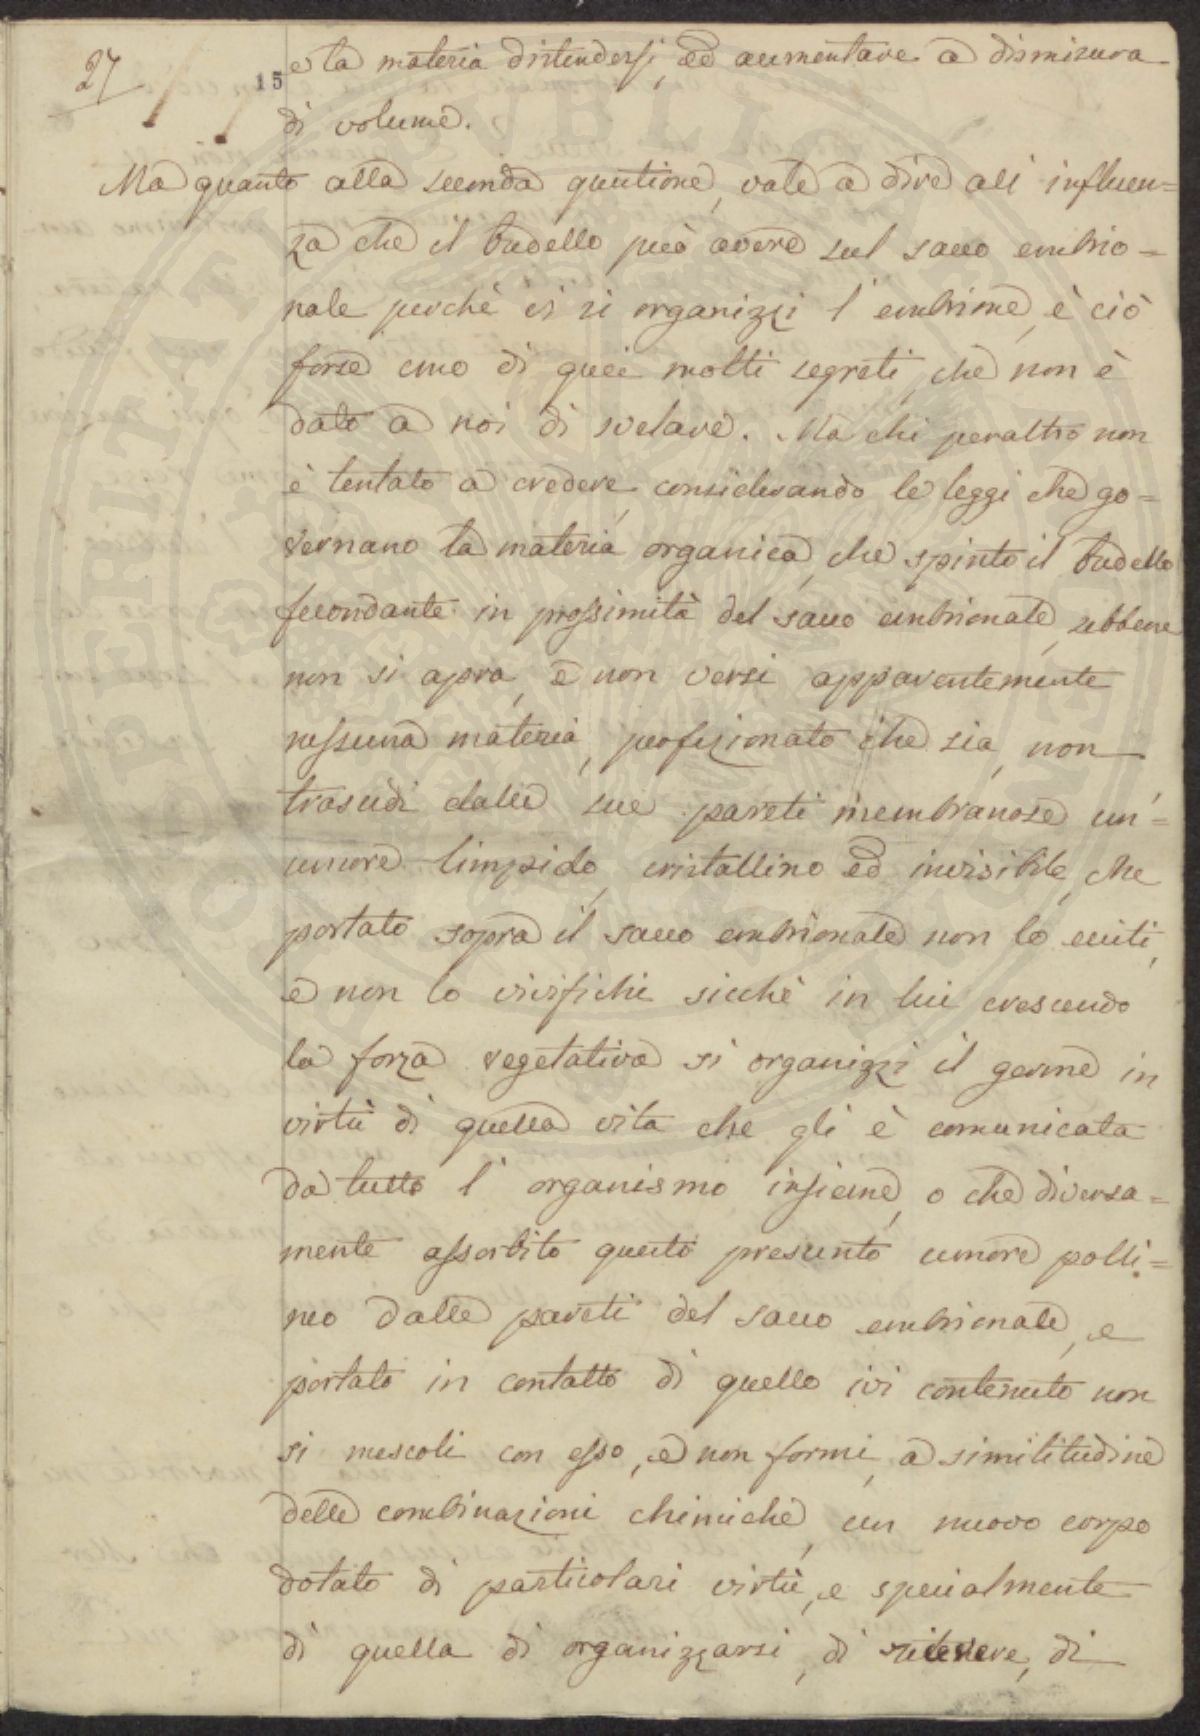 27
15
e la materia distendersi, ed aumentare a dismisura
di volume.
Ma quanto alla seconda questione, vale a dire all' influen=
za che il budello può avere sul sacco embrio=
nale perchè ci si organizzi l' embrione, è ciò
forse uno di quei molti segreti, che non è
dato a noi di svelare. Ma chi peraltro non
è tentato a credere, considerando le leggi che go=
vernano la materia organica, che spinto il budello
fecondante in prossimità del sacco embrionale, sebbene
non si apra, e non versi apparentemente
nessuna materia, perfezionato che sia, non
trasudi dalle sue pareti membranose un'=
umore limpido, cristallino ed invisibile, che
portato sopra il sacco embrionale non lo ecciti,
e non lo vivifichi sicchè in lui crescendo
la forza vegetativa si organizzi il germe in
virtù di quella vita che gli è comunicata
da tutto l' organismo insieme, o che diversa=
mente assorbito questo presunto umore polli=
neo dalle pareti del sacco embrionale, e
portato in contatto di quello ivi contenuto non
si mescoli con esso, e non formi, a similitudine
delle combinazioni chimiche, un nuovo corpo
dotato di particolari virtù, e specialmente
di quella di organizzarsi, di di